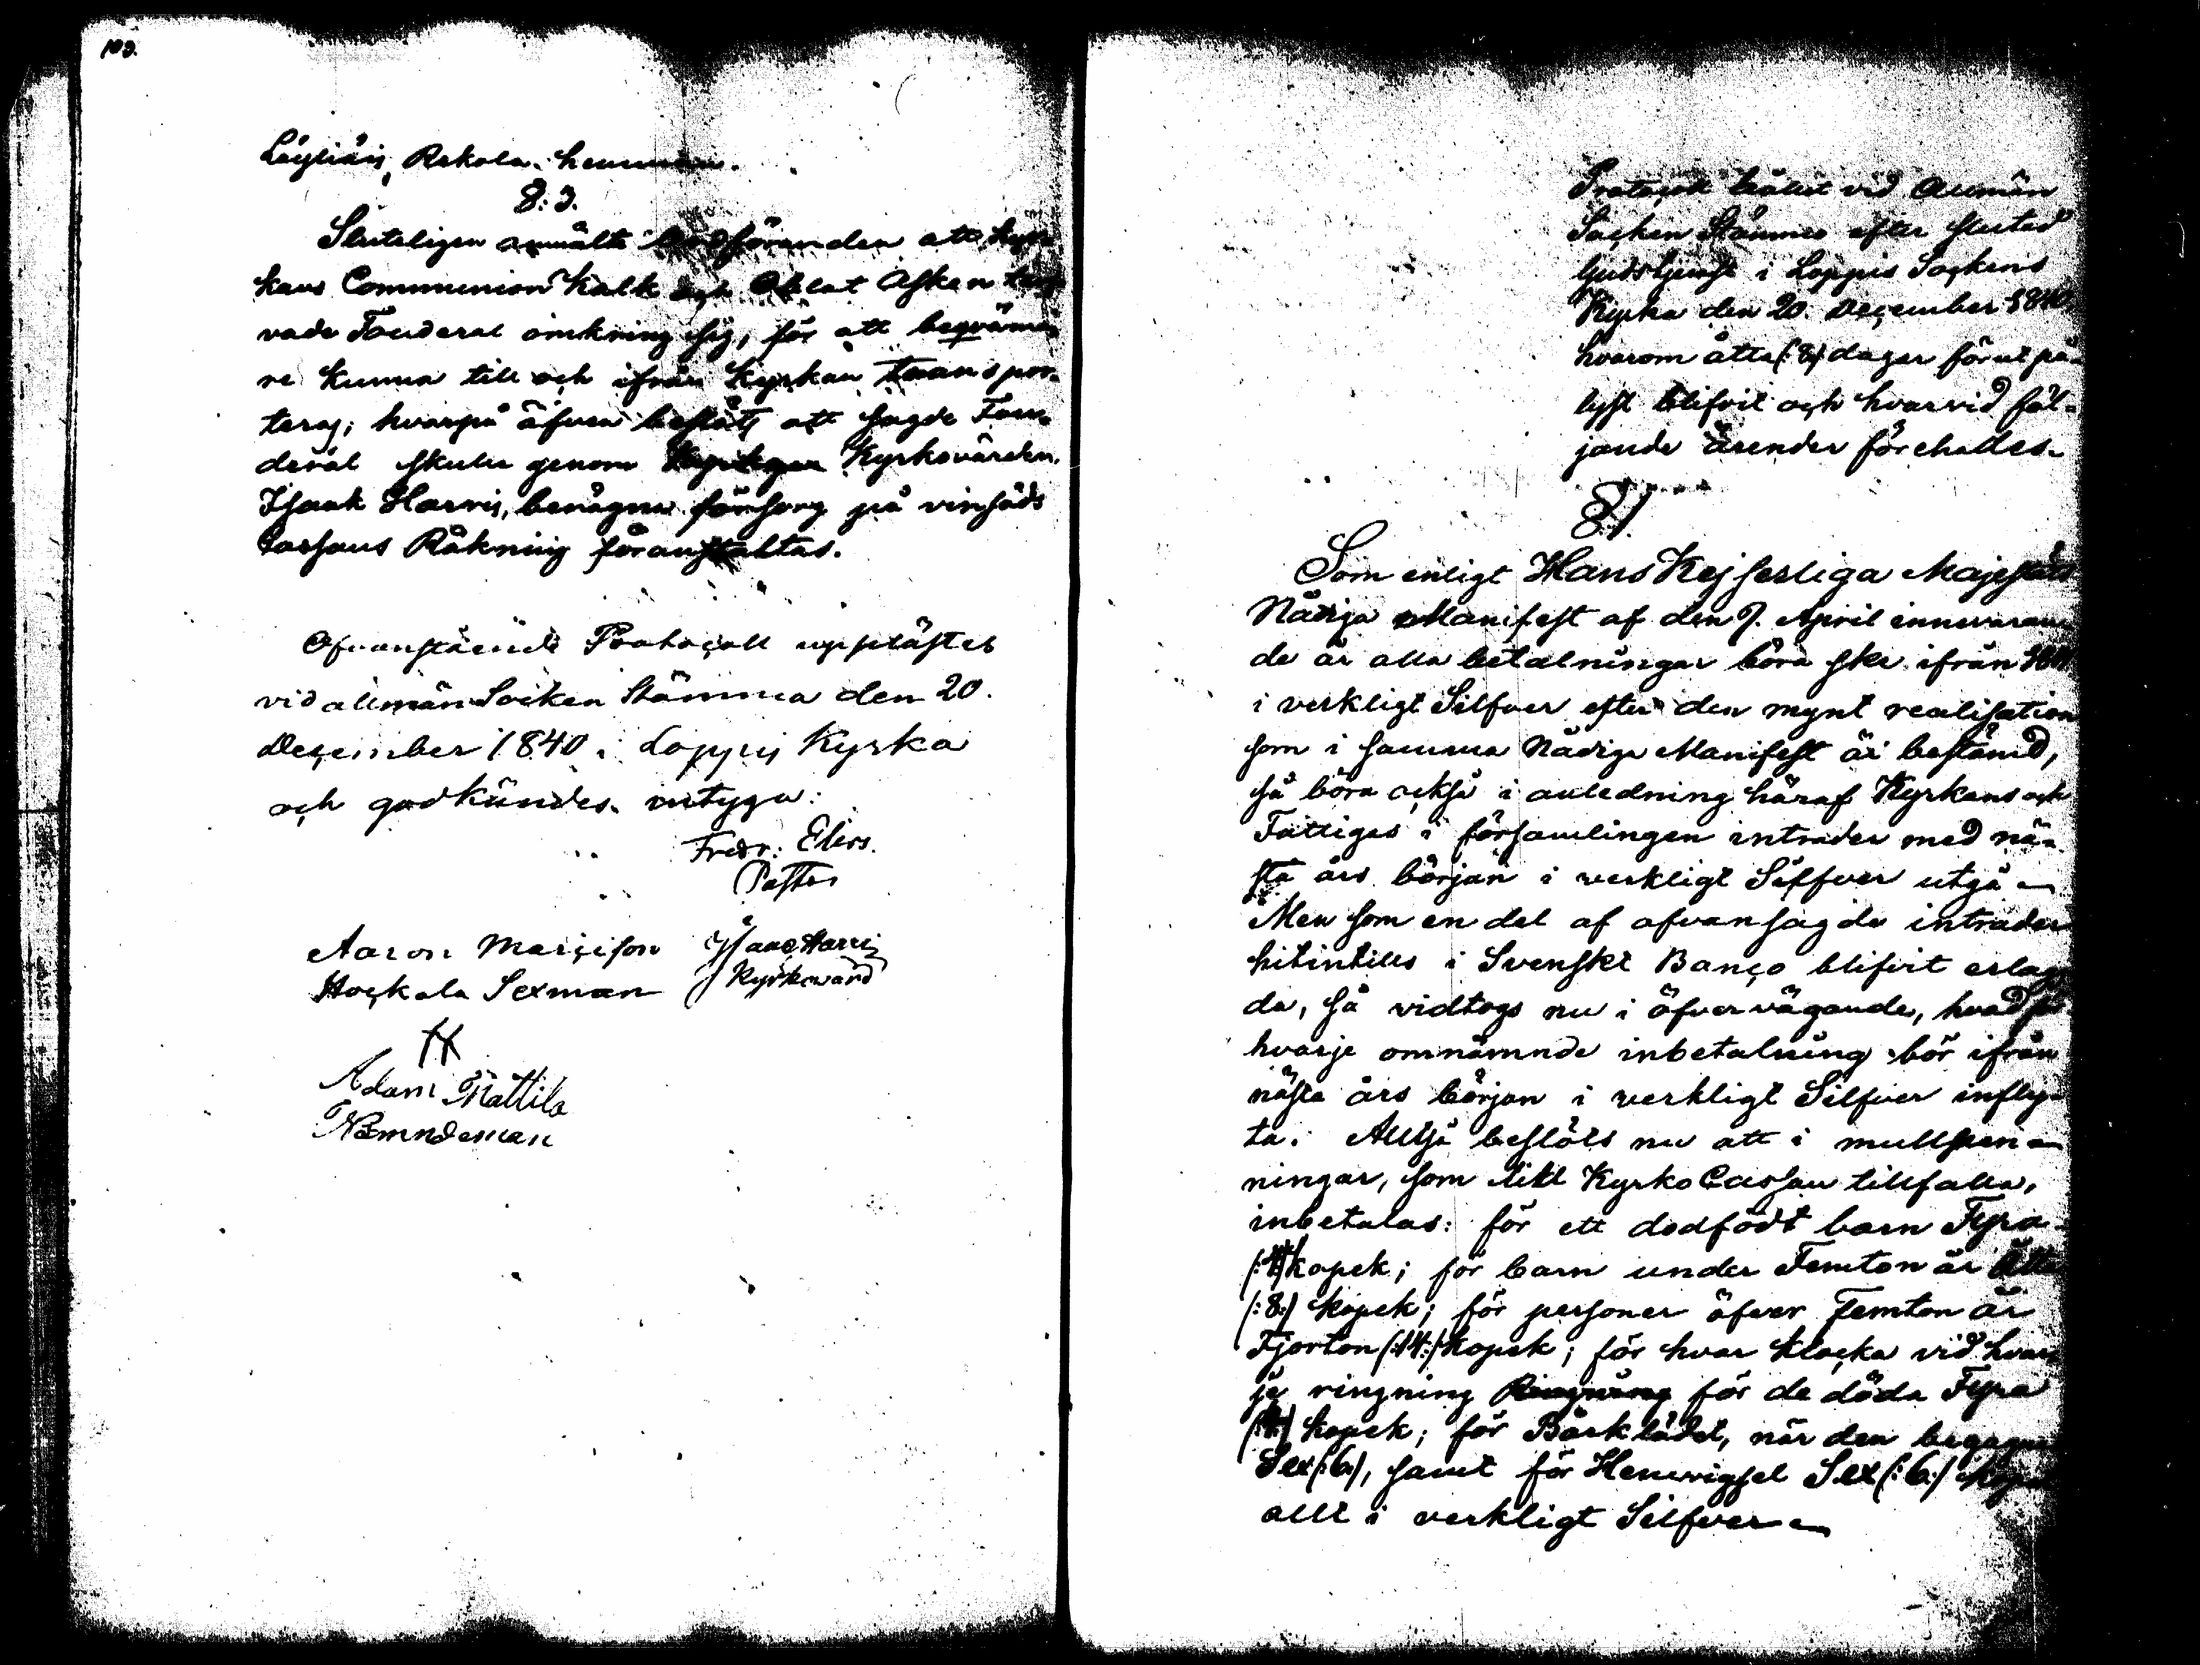 103.
Löyliäis, Rekola hemman.
§:3.
Sluteligen anmälte Ordföranden att Kyr-
kans Communion Kalk och Oblat Asken
vade Fouderal omkring sig, för att beqväma-
re kunna till och ifrån Kyrkan transpor-
teras; hvarpå äfven beslöts att sagde Fou-
deral skulle genom Kyrkovärden
Isaak Harris, benägna försorg på vinsäds
Cassans Räkning föranstaltas.
Ofvanstående Protocoll upplästes
vid allmän Socken Stämma den 20.
December 1840 i Loppis Kyrka
och godkändes. intyga:
Fredr: Elers.
Pastor
Aaron Maricison Isaac Harri
Hockala Sexman Kyrkovärd
Adam Mattila
Nämndeman
Protocoll hållit vid Allmän
Socken Stämma efter slutad
Gudstjenst i Loppis Sockens
Kyrka den 20. December 1840,
hvarom åtta (:8:) dagar förut på-
lyst blifvit och hvarvid föl-
jande ärender förehades.
§1.
Som enligt Hans Kejserliga Majestäts
Nådiga Manifest af den 9. April innevaran-
de år alla betalningar böra ske ifrån 1841
i verkligt Silfver efter den mynt realisation
som i samma Nådiga Manifest är bestämd,
så böra också i anledning häraf Kyrkans och
Fattiges i församlingen intrader med nä-
sta års början i verkligt Silfver utgå
Men som en del af ofvansagde intrader
hitintills i Svenskt Banco blifvit erlag-
da, så vidtogs nu i öfvervägande, hvad för
hvarje omnämnde inbetalning bör ifrån
nästa års början i verkligt Silfver infly-
ta. Alltså beslöts nu att i mullpen-
ningar, som till Kyrko Cassan tillfalla,
inbetalas: för ett dödfödt barn Fyra
(:4:) kopek; för barn under Femton år Åtta
(:8:) kopek; för personer öfver Femton år
Fjorton (:14:) kopek; för hvar klocka vid hvar-
je ringning Ringning för de döda Fyra
(:4:) kopek; för Bårklädet, när den begagnas
Sex (:6:), samt för Hemvigsel Sex (:6:) kopek
allt i verkligt Silfver